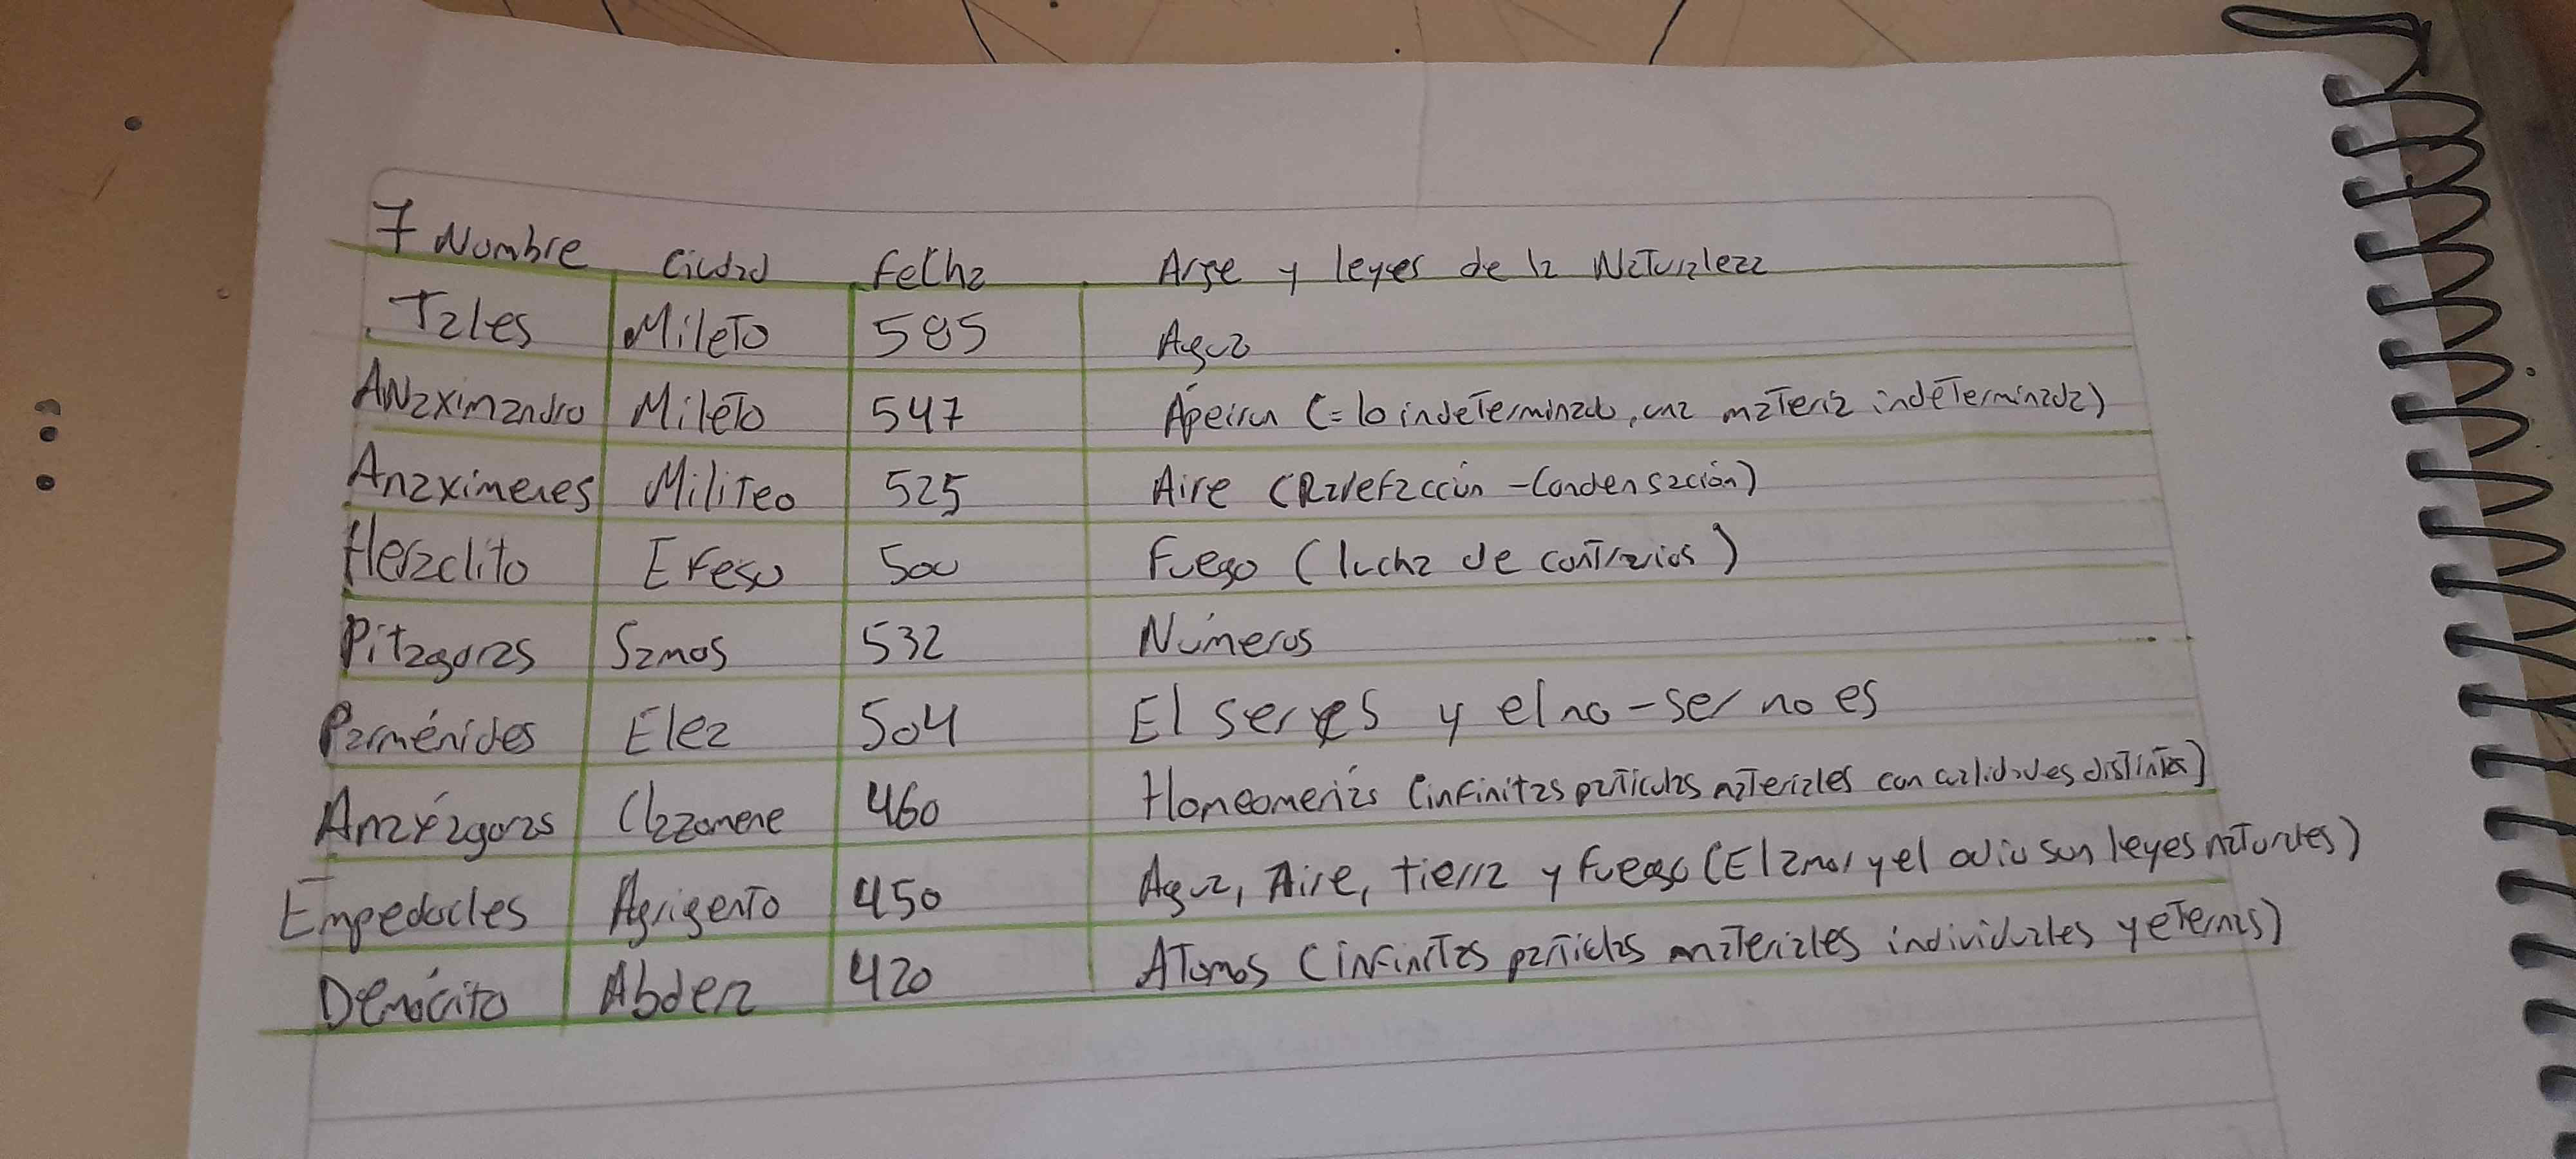 7 Nombre Ciudad Fecha Arge y leyes de la Naturaleza
Tales Mileto 585 Agua
Anaximandro Mileto 547 Ápeiron (=lo indeterminado, una materia indeterminada)
Anaxímenes Militeo 525 Aire (Rarefacción-Condensación)
Heraclito Efeso 500 Fuego (lucha de contrarios)
Pitagoras Samos 532 Números
Parménides Elea 504 El ser es y el no-ser no es
Anaxágoras Clazomene 460 Homeomerías (infinitas partículas materiales con cualidades distintas)
Empedocles Agrigento 450 Agua, Aire, tierra y fuego (El amor y el odio son leyes naturales)
Demócrito Abdera 420 Atomos (infinitas particlas materiales individuales y eternas)